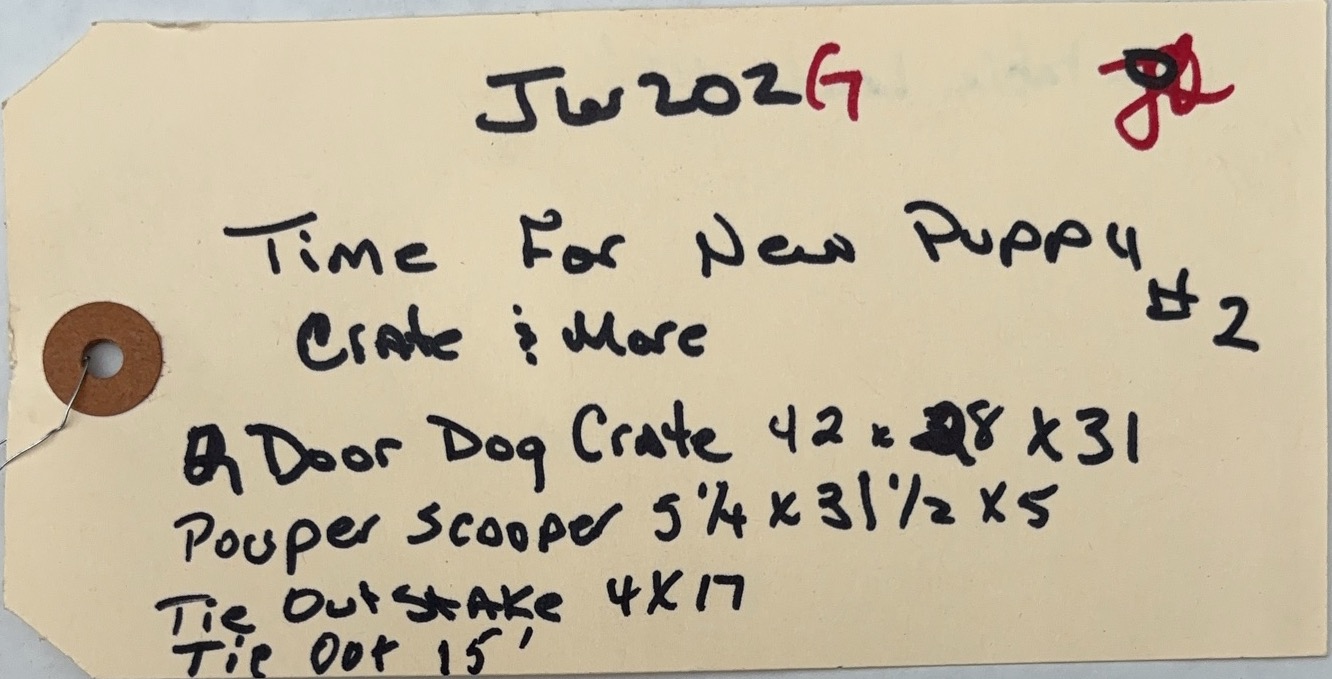 JW202G
Time For New Puppy
Crate & More #2
2 Door Dog Crate 42 x 28 X 31
Pouper Scooper 5 1/4 X 31 1/2 X 5
Tie Out Stake 4X17
Tie Out 15'